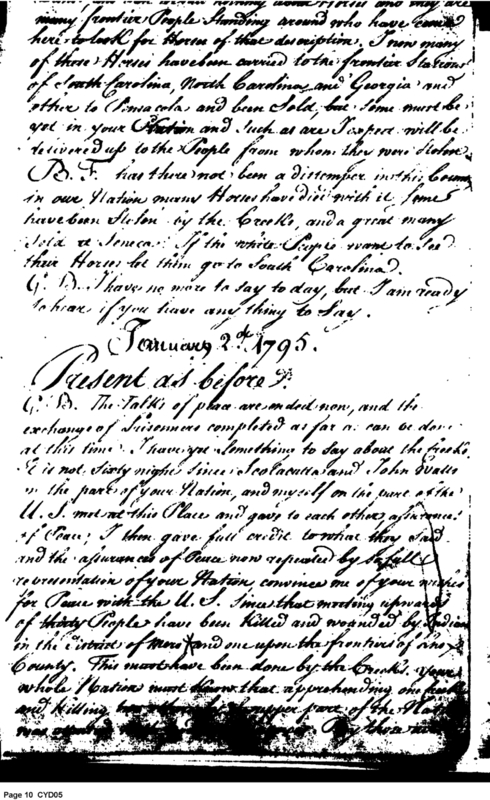 many frontier People standing around who have
here to look for Horses of that description, I now many
of those Horses have been carried to the frontier Stations
of South Carolina, North Carolina and Georgia and
other to Pensacola and been Sold, but some must be
yet in your Nation and Such as are I expect will be
delivered up to the People from whom they were Stolen
B. F. has there not been a distemper in this
in our Nation many Horses have died with it, some
have been Stolen by the Creeks, and a great many
Sold at Seneca: If the white People want to See
their Horses let them go to South Carolina.
G. B. I have no more to say to day, but I am ready
to hear if you have any thing to Say.
January 2d. 1795.
Present as before
G. B. The Talks of peace are ended now, and the
exchange of Prisoners completed as far as can be done
at this time. I have yet something to say about the Creeks.
It is not Sixty nights since Scolacutta and John Watts
on the part of your Nation, and myself on the part of the
U. S. met at this Place and gave to each other assurances
of Peace; I then gave full credit to what they said
and the assurances of Peace now repeated by so full
representation of your Nation convince me of your wishes
for Peace with the U. S. Since that meeting upwards
of thirty People have been Killed and wounded by Indians
in the district of Mero and one upon the frontiers of Knox
County. This must have been done by the Creeks. Your
whole Nation must know that apprehending one Creek
and Killing upper part of the Nation
was
Page 10 CYD05